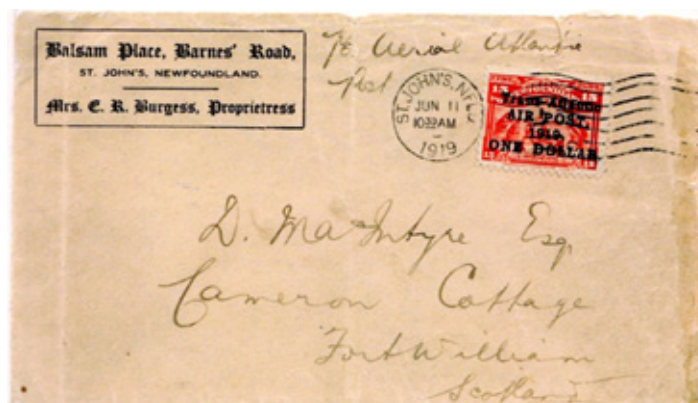 Balsam Place, Barnes' Road,
ST. JOHN'S, NEWFOUNDLAND.
Mrs. E. R. Burgess, Proprietress
Aerial Atlantic
Post
ST. JOHN'S, NFLD
JUN 11
1030AM
1919
15 15
Trans-Atlantic
AIR POST,
1919.
ONE DOLLAR.
D. MacIntyre Esq
Cameron Cottage
Fort William
Scotland